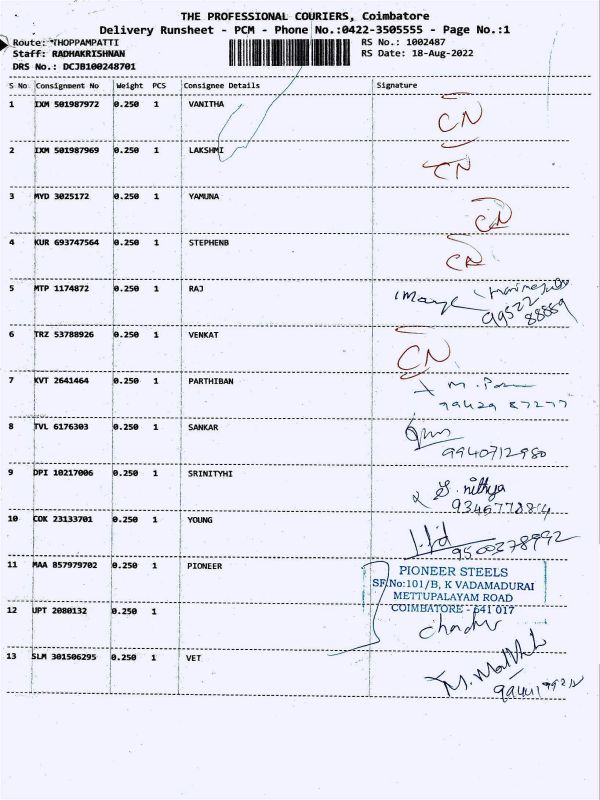 THE PROFESSIONAL COURIERS, Coimbatore
Delivery Runsheet - PCM - Phone No.:0422-3505555 - Page No.:1
Route: THOPPAMPATTI RS No.: 1002487
Staff: RADHAKRISHNAN RS Date: 18-Aug-2022
DRS No.: DCJB100248701
S No Consignment No Weight PCS Consignee Details Signature
1 IXM 501987972 0.250 1 VANITHA CN
2 IXM 501987969 0.250 1 LAKSHMI CN
3 MYD 3025172 0.250 1 YAMUNA CN
4 KUR 693747564 0.250 1 STEPHENB CN
5 MTP 1174872 0.250 1 RAJ 99522
88889
6 TRZ 53788926 0.250 1 VENKAT CN
7 KVT 2641464 0.250 1 PARTHIBAN M.
99429 87277
8 TVL 6176303 0.250 1 SANKAR
9940712980
9 DPI 10217006 0.250 1 SRINITYHI S. nithya
10 COK 23133701 0.250 1 YOUNG
9500378992
11 MAA 857979702 0.250 1 PIONEER PIONEER STEELS
SF.No:101/B, K VADAMADURAI
METTUPALAYAM ROAD
COIMBATORE - 641 017
12 UPT 2080132 0.250 1
13 SLM 301506295 0.250 1 VET M.